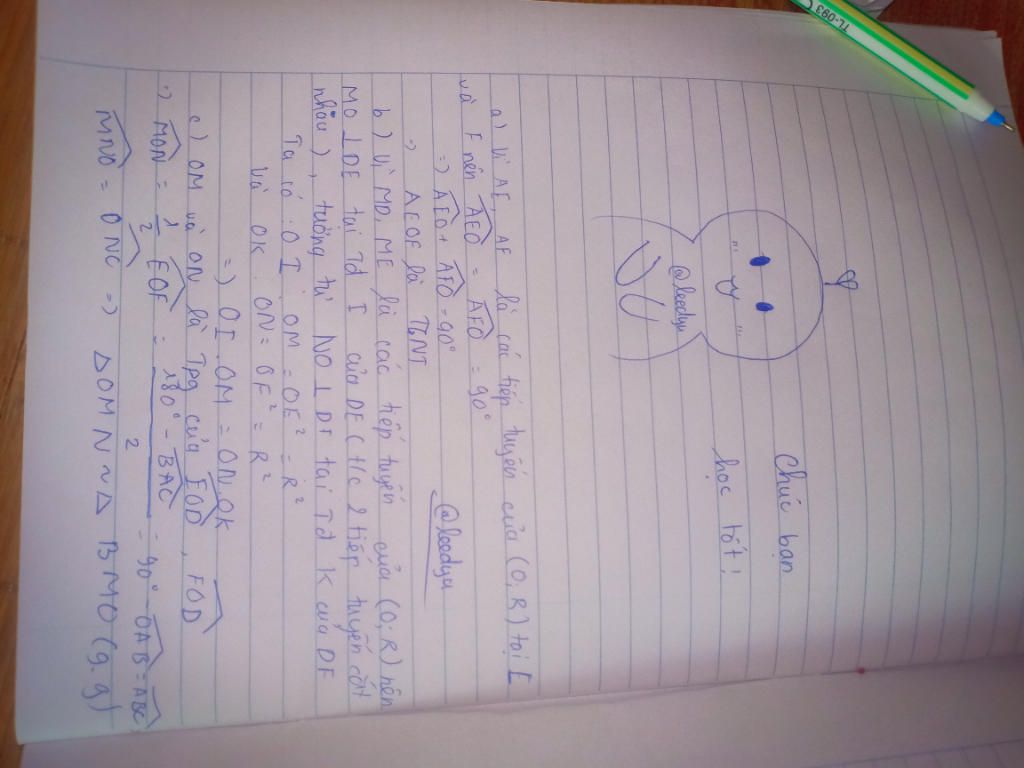 TL-093
Chúc bạn
học tốt!
@leedya
a) Vì AE, AF là các tiếp tuyến của (O; R) tại E
và F nên AEO = AFO = 90°
=> AEO + AFO = 90°
=> AEOF là TGNT
@leedya
b) Vì MD, ME là các tiếp tuyến của (O, R) nên
MO ⊥ DE tại Tđ I của DE (t/c 2 tiếp tuyến cắt
nhau), tương tự NO ⊥ DF tại Tđ K của DF
Ta có: OI . OM = OE² = R²
Và OK . ON = OF² = R²
=> OI . OM = ON . OK
c) OM và ON là Tpg của EOD, FOD
=> MON = 1/2 EOF = (180° - BAC)/2 = 90° - OAB = ABC
MNO = ONC => Δ OMN ~ Δ BMO (g.g)